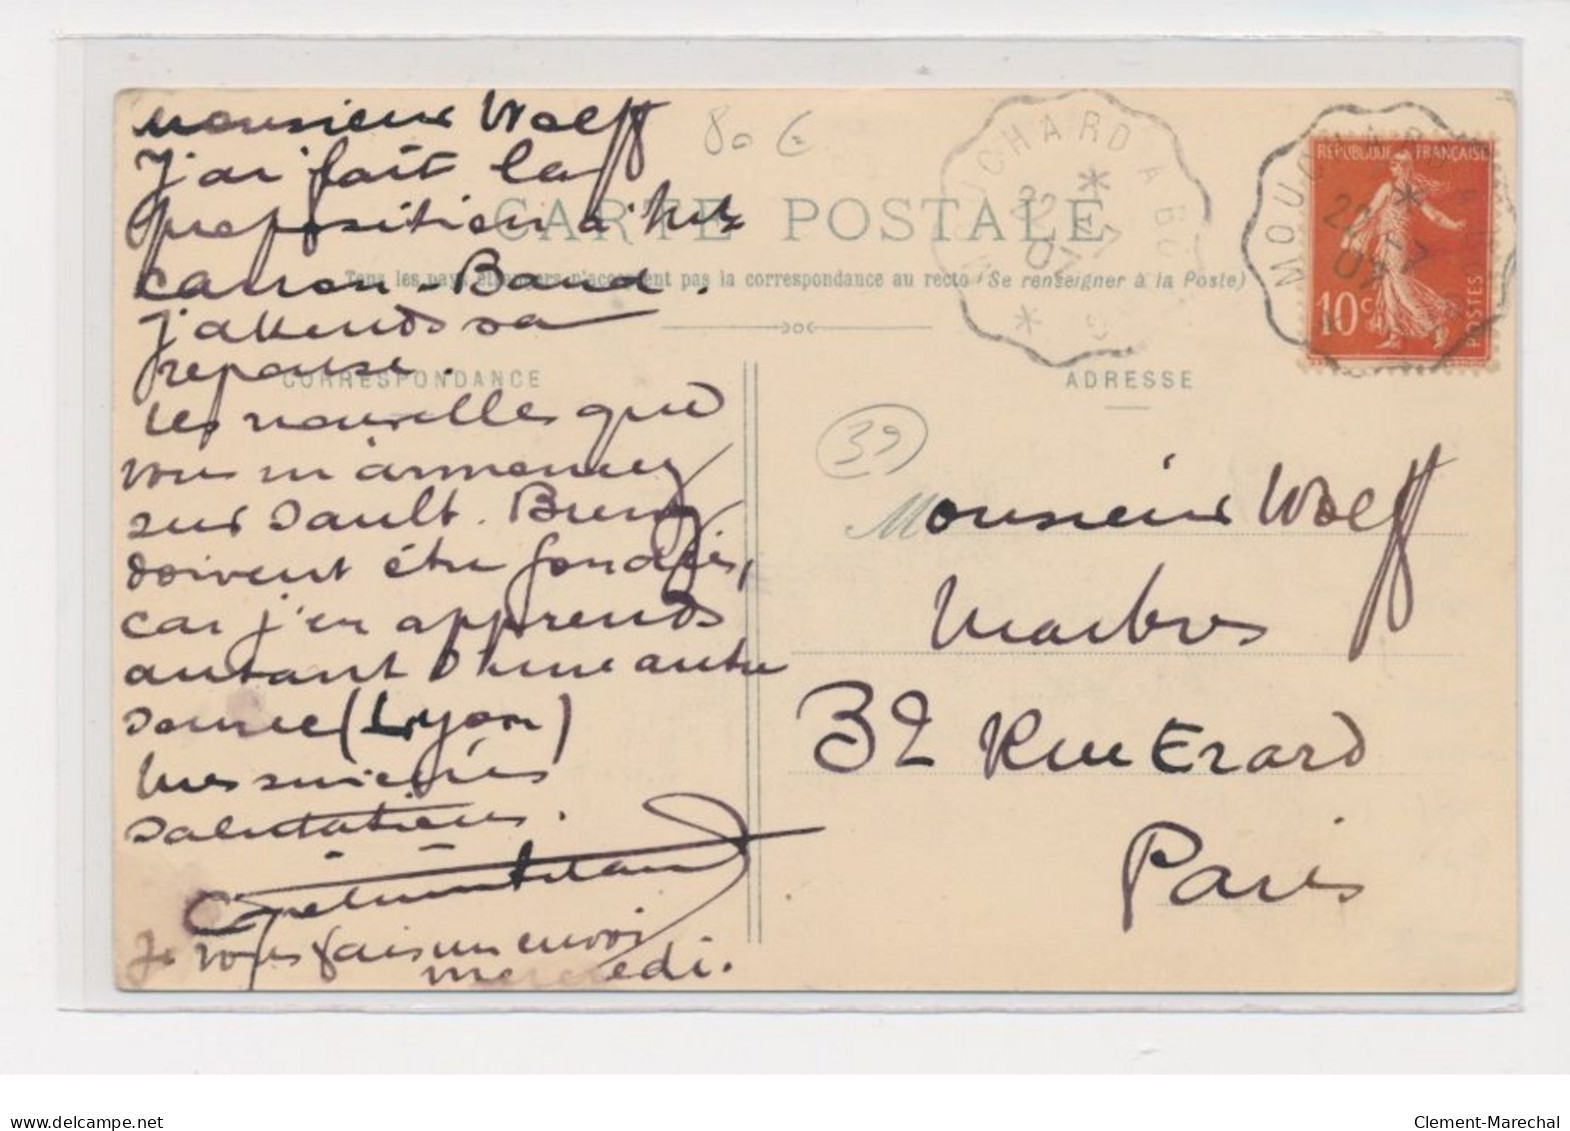 Monsieur Wolff
J'ai fait la
proposition à
Carron-Band.
J'attends sa
reponse.
les nouvelles que
vous m'annoncez
sur Sault. Brenaz
doivent être fondées,
car j'en apprends
autant d'une autre
source (Lyon)
mes sincères
salutations.
Je vous fais un envoi
mercredi.
80 €
CARTE POSTALE
Tous les pays étrangers n'acceptent pas la correspondance au recto (Se renseigner à la Poste)
CORRESPONDANCE
ADRESSE
MOUCHARD A BO
22 -7
07
MOUCHARD A
22 -7
07
REPUBLIQUE FRANÇAISE
10c
POSTES
39
Monsieur Wolff
Marbres
32 Rue Erard
Paris
www.delcampe.net
Clement-Marechal